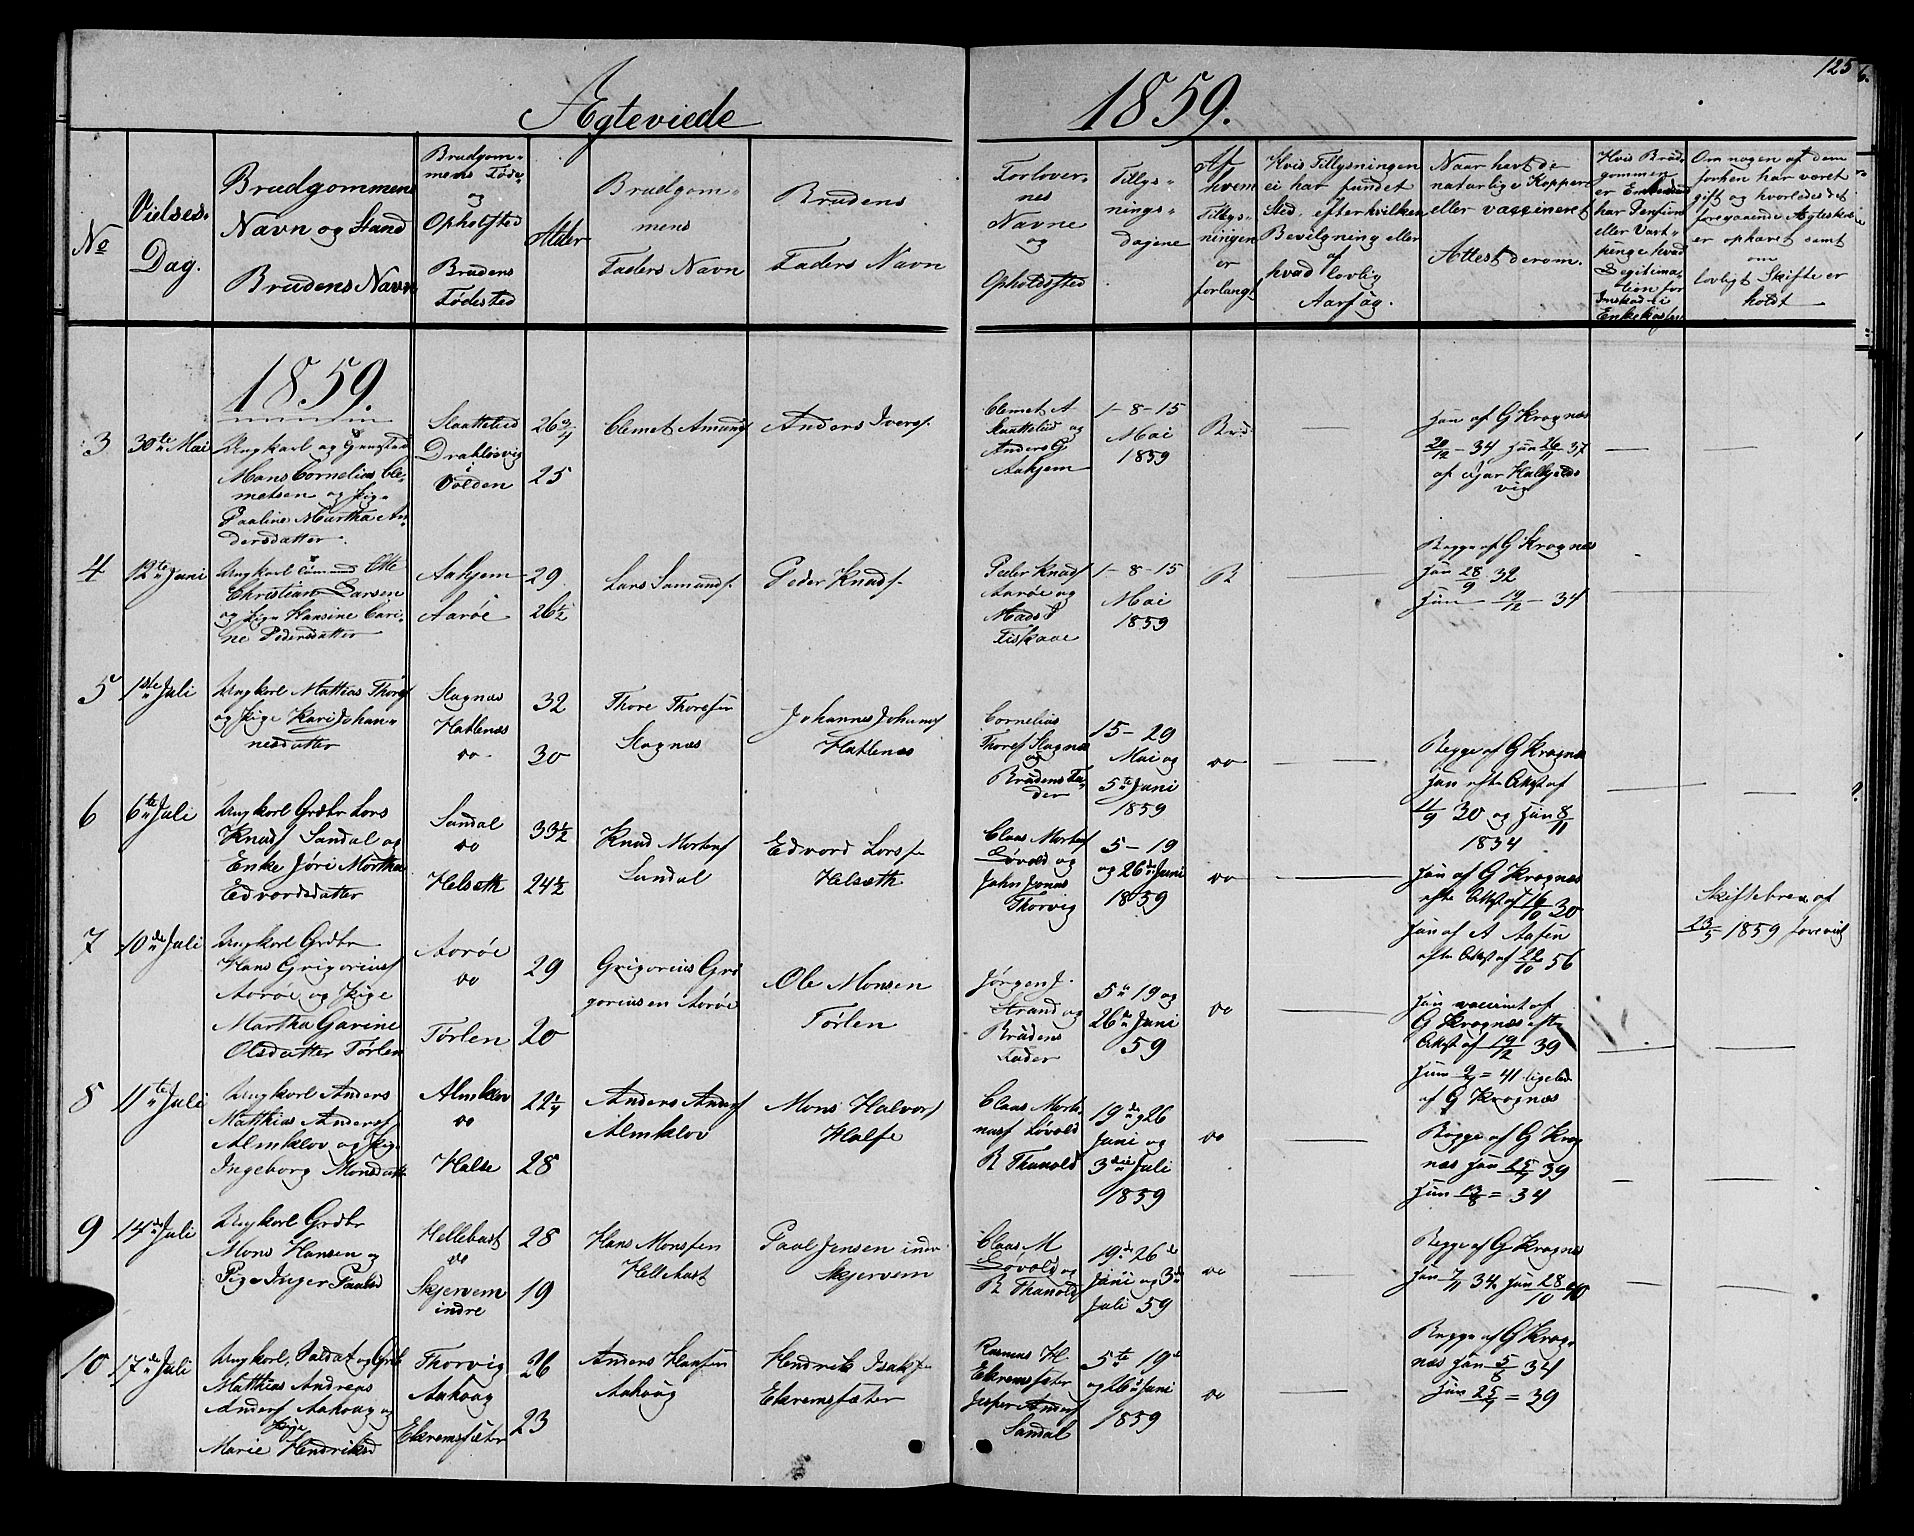 125
Ægteviede
1859.
No
Vielses-
Dag.
Brudgommens
Navn og Stand
Brudens Navn
Brudgom-
mens Føde-
og
Opholsted
Brudens
Fødested
Alder
Brudgom-
mens
Faders Navn
Brudens
Faders Navn
Forlover-
nes
Navne
og
Opholdssted
Tillys-
nings-
dagene
Af
hvem
Tillys-
ningen
er
forlangt
Hvis Tillysningen
ei har fundet
Sted, efter hvilken
Bevilgning eller
af
hvad lovlig
Aarsag.
Naar havt de
naturlige Kopper
eller vaccineret
Attest derom.
Hvis Brud-
gommen
er
har Pension
eller Vart-
penge hvad
Legitima-
tion for
Indskud i
Enkekassen
Om nogen af dem
forhen har været
gift og hvorledes det
foregaaende Ægteskab
er ophævet samt
om
lovligt Skifte er
holdt
1859.
3
30te Mai
Ungkarl og
Mons Cornelius Cle-
metsen og Pige
Pauline Martha An-
dersdatter.
Slaattelid
Dravlesvig
i
Volden
26 3/4
25
Clemet Amunds
Anders Ivers.
Clemet A
Slaattelid og
Anders G
Aahjem
1-8-15
Mai
1859
Han af G Kragnæs
20/12 - 34 Hun 26/11 37
af
4
12te Juni
Ungkarl Otte
Christian Larsen
og Pige Hansine Cari-
ne Pedersdatter
Aahjem
Aarøe
29
26 1/2
Lars Samunds.
Peder Knuds.
Peder Knuds
Aarøe og
Mads
Fiskaae
1-8-15
Mai
1859
B
Begge af G Kragnæs
Han 28/9 32
Hun - 19/12 - 34
5
1ste Juli
Ungkarl Mattias Thores
og Pige Kari Johan-
nesdatter
Slagnæs
Hatlenæs
oo
32
30
Thore Thoresen
Slagnæs
Johannes Johannes
Hatlenæs
Cornelius
Thores Slagnæs
og
Brudens Fa-
der
15-29
Mai og
5te Juni
1859
oo
Begge af G Kragnæs
Han efter Attest af
11/9 30 og Hun 8/11
1834
6
6te Juli
Ungkarl Grdbr Lars
Knuds Sandal og
Enke Jøri Martha
Edvardsdatter
Sandal
oo
Helsæth
33 1/2
24 1/2
Knud Mortens
Sandal
Edvard Lars
Helsæth
Claas Mortens
Løvold og
John Jonas
Thorvig
5-19
og 26de Juni
1859
oo
Han af G Kragnæs
efter Attest af 16/10 30
Hun af A Aasen
efter Attest af 22/10 56
Skiftebrev af
23/5 1859 foreviist
7
10de Juli
Ungkarl Grdbr
Hans Grigorius
Aarøe og Pige
Martha Garine
Olsdatter Tørlen
Aarøe
oo
Tørlen
29
20
Grigorius Gri
goriusen Aarøe
Ole Monsen
Tørlen
Jørgen J.
Strand og
Brudens
Fader
5te 19 og
26de Juni
59
oo
Han vaccineret af
G Kragnæs efter
Attest af 19/12 39
Hun 9/7 = 41 ligeled
af G Kragnæs
8
11te Juli
Ungkarl Anders
Matthias Anders
Almklov og Pige
Ingeborg Monsdatter
Almklov
oo
Halse
22 1/4
28
Anders Anders
Almklov
Mons Halvors
Halse
Claas Morte-
nus Løvold
R Thunold
19de og 26
Juni og
3die Juli
1859
oo
Begge af G Krag
næs Han 25/7 39
Hun 13/8 = 34
9
14de Juli
Ungkarl Grdbr
Mons Hansen og
Pige Inger Paulsd
Hellebust
oo
Skjervem
indre
28
19
Hans Monsen
Hellebust
Paul Jensen indre
Skjervem
Claas M
Løvold og
R Thunold
19de 26de
Juni og 3die
Juli 59
oo
Begge af G Kragnæs
Han 7/11 34 Hun 28/10 40
10
17de Juli
Ungkarl, Soldat og Grdb
Matthias Andreas
Anders Aahaag og
Pige
Marie Hendriksd
Thorvig
Aahaag
Ekremsæter
26
23
Anders Hansen
Aahaag
Hendrik Isaks
Ekremsæter
Rasmus H
Ekremsæter
Jesper Anders
Sandal
5te 19de
og 26de Juni
1859
oo
Begge af G Krag-
næs Han 5/8 34
Hun 25/7 = 39